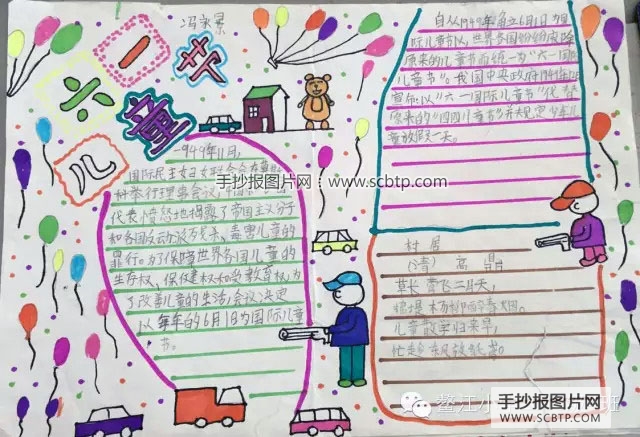 冯
六一
儿童节
自从1949年
际儿童节以,世界各国纷纷废除
原来的儿童节而统一为“六一国际
儿童节”。我国中央政府
宣布以“六一国际儿童节”代替
原来的“四四儿童节”并规定少年儿
童放假一天。
1949年11月,
国际民主妇女联合会在莫斯
科举行理事会议,
代表愤怒地揭露了帝国主义分子
和各国反动派
毒害儿童的
罪行。为了保障世界各国儿童的
生存权、保健权和受教育权,为
了改善儿童的生活,会议决定
以每年的6月1日为国际儿童
节。
手抄报图片网:www.scbtp.com
村居
(清)高鼎
草长莺飞二月天,
拂堤杨柳醉春烟。
儿童散学归来早,
忙趁
鳌江小
班
手抄报图片网
www.scbtp.com